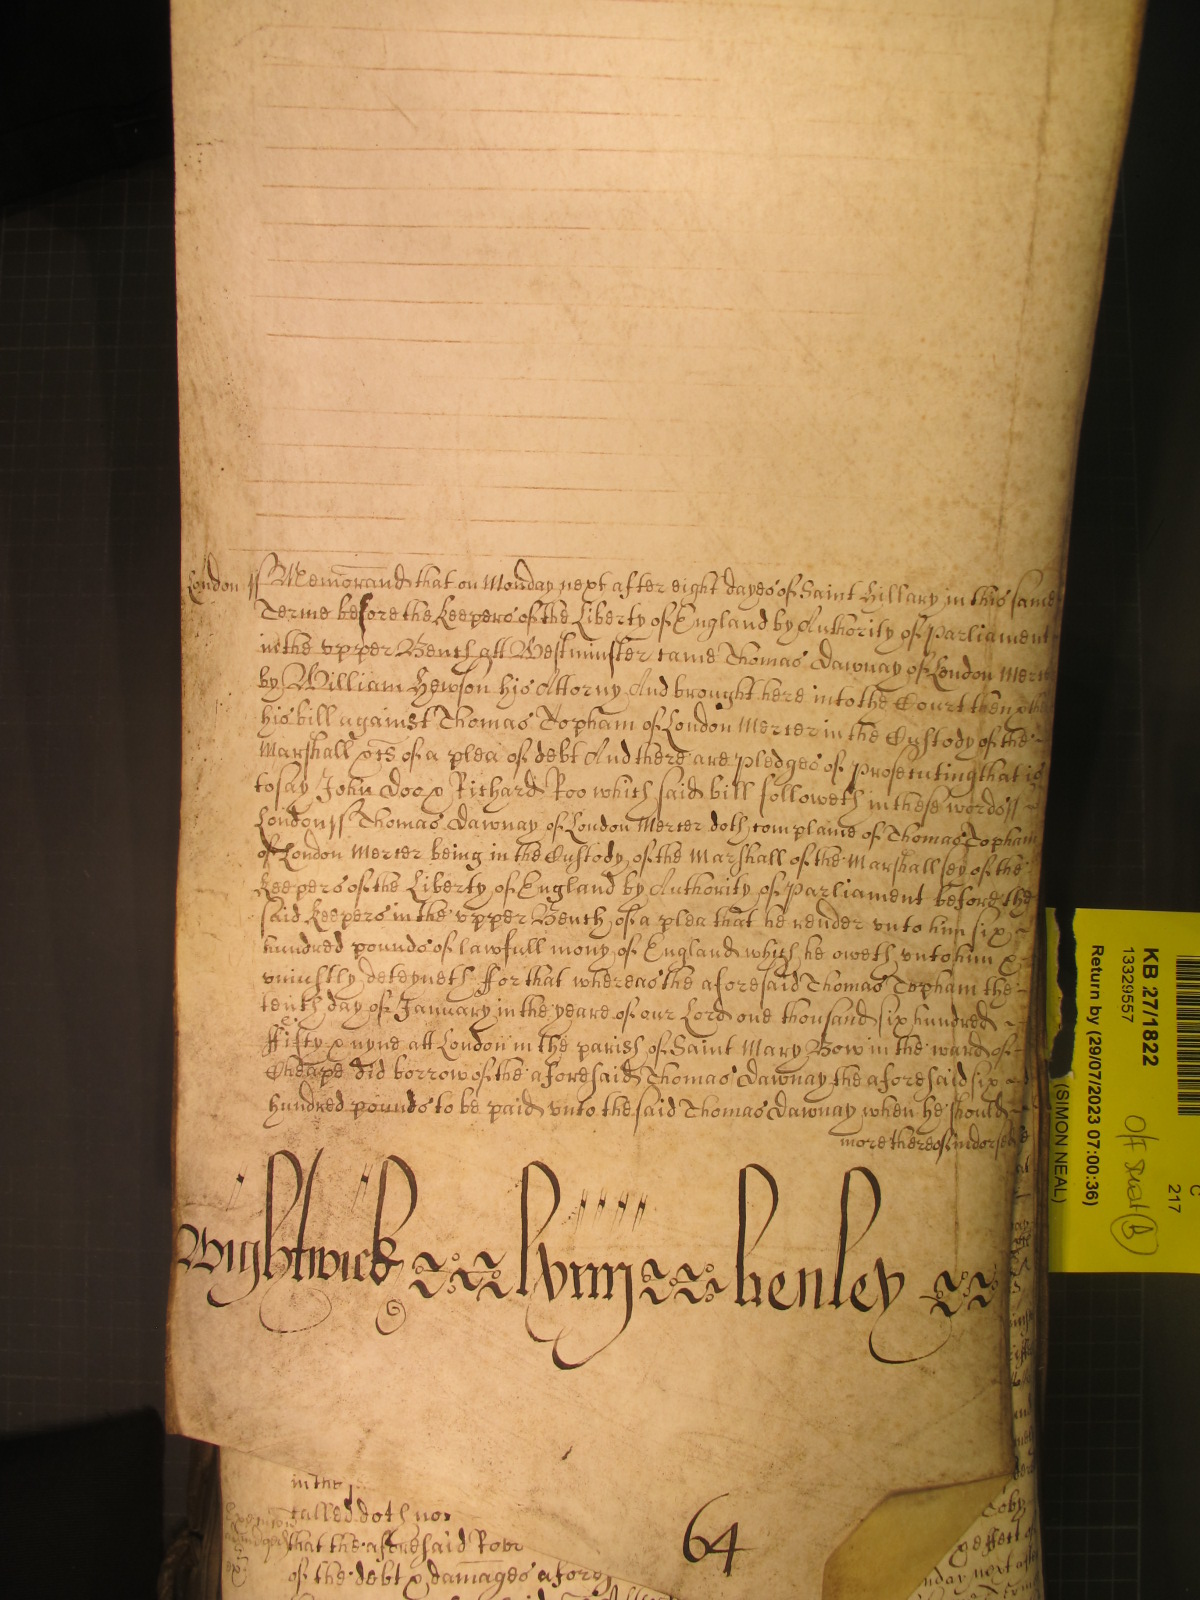 London ss Memorand that on Monday next after eight dayes of Saint Hillary in this same
Terme before the Keepers of the Liberty of England by Authority of Parliament
in the vpper Bench att Westminster came Thomas Dawnay of London Mercer
by William Hewson his Attorny And brought here into the Court then &
his bill against Thomas Topham of London Mercer in the Custody of the
Marshall &c of a plea of debt And there are pledges of prosecuting that is
to say John Doo & Richard Roo which said bill followeth in these words ss
London ss Thomas Dawnay of London Mercer doth complaine of Thomas Topham
of London Mercer being in the Custody of the Marshall of the Marshallsey of the
Keepers of the Liberty of England by Authority of Parliament before the
said Keepers in the vpper Bench of a plea that he render vnto him six
hundred pounds of lawfull mony of England which he oweth vnto him &
vniustly deteyneth ffor that whereas the aforesaid Thomas Topham the
tenth day of January in the yeare of our Lord one thousand six hundred
ffifty & nyne att London in the parish of Saint Mary Bow in the ward of
Cheape did borrow of the aforesaid Thomas Dawnay the aforesaid six
hundred pounds to be paid vnto the said Thomas Dawnay when he should
more thereof indorsed
Wightwick lviiij henley
in the
called doth not
that the aforesaid Rob
of the debt & damages afores
64
Coby
nday next aft
KB 27/1822
13329557
Return by (29/07/2023 07:00:36)
(SIMON NEAL)
C
217